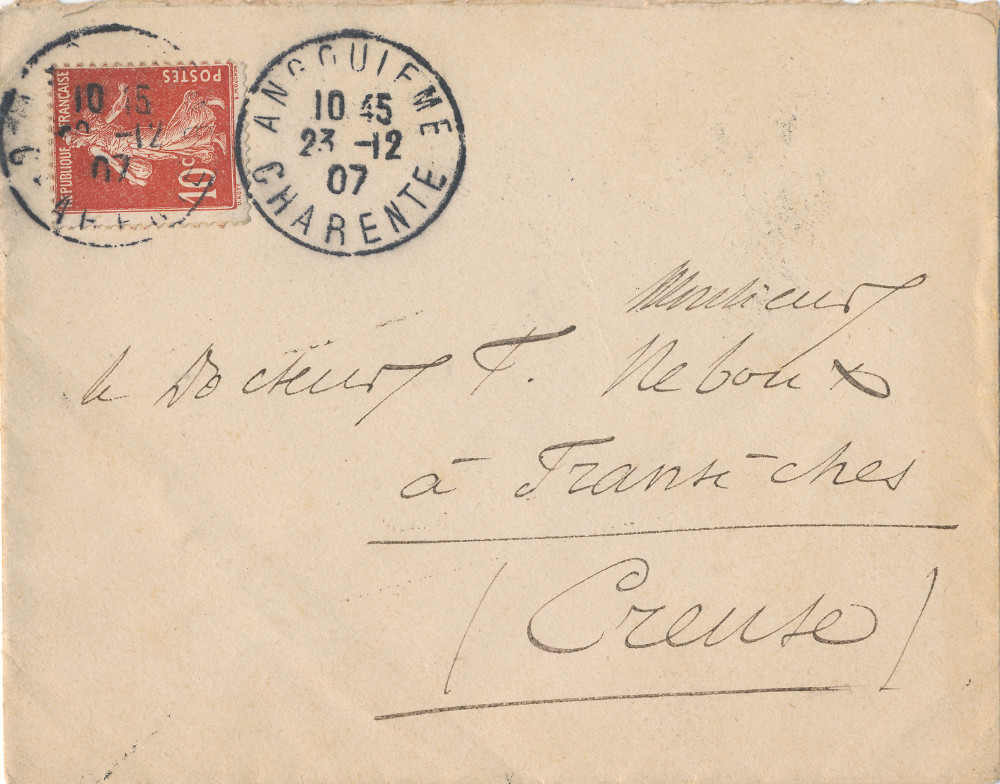 RÉPUBLIQUE FRANÇAISE
POSTES
10c
10 45
23 -12
07
ANGOULEME
10 45
23 -12
07
CHARENTE
Monsieur
le Docteur F. Neboux
à Fransèches
(Creuse)